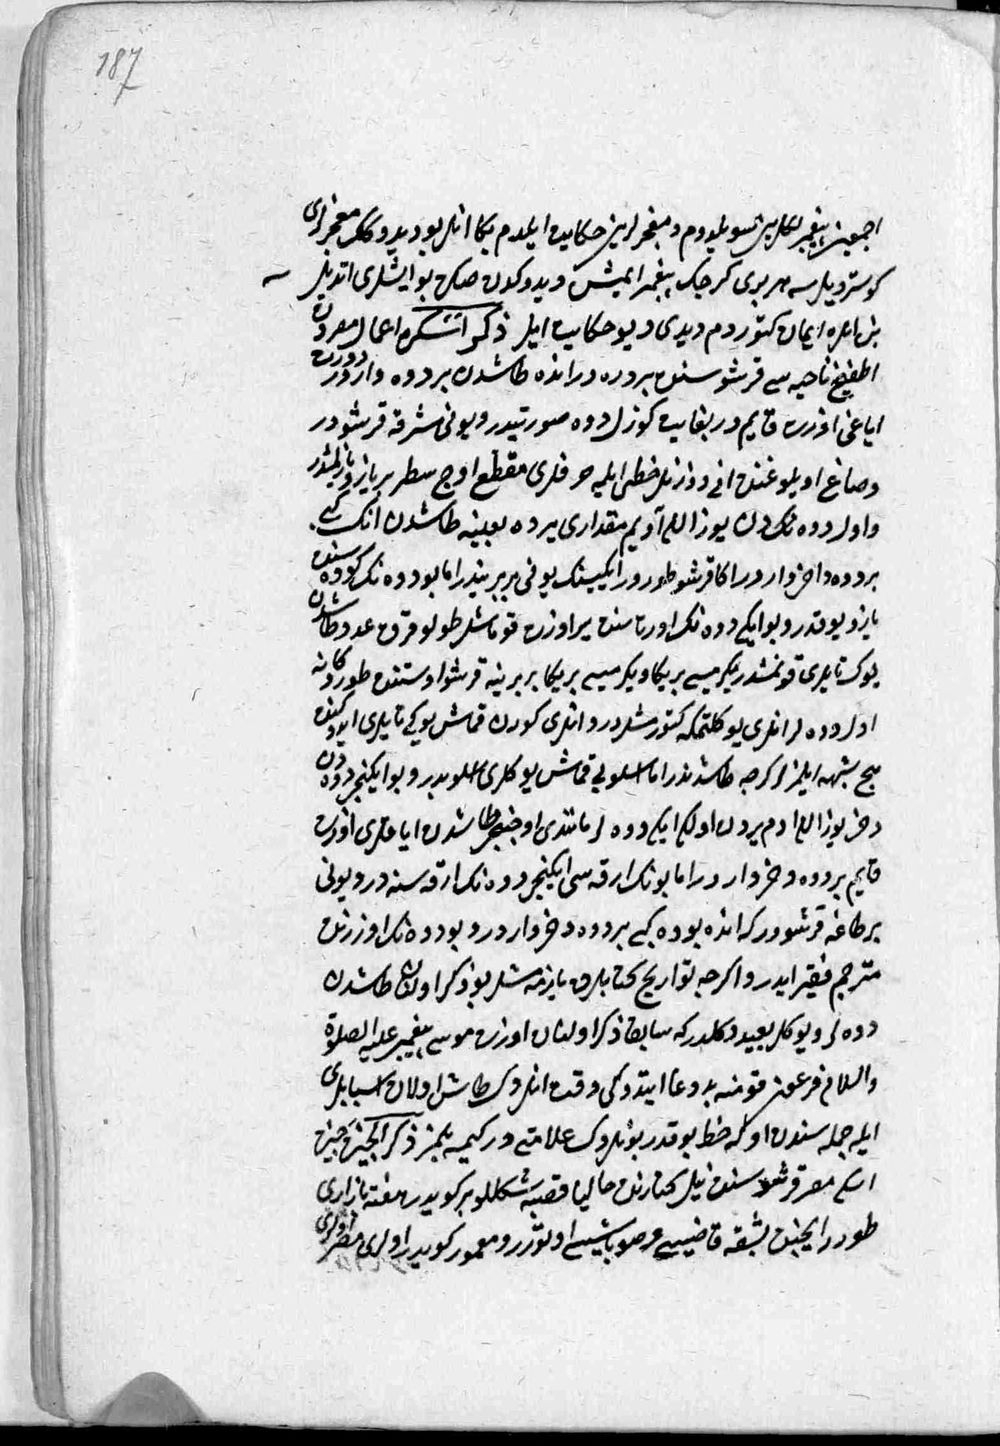 187
اجمعین پیغمبرلکلرین سویلدوم و معجزلرین حکایت ایلدم بکا انلر بو دیدوکک معجزلری
کوستردیلرسه هر بری کرجک پیغمبر ایمش دیدوکدن صکره بو ایشلری اتدیلر
بن انلره ایمان کتوردم دیدی دیو حکایت ایلر ذکر اعمال مصردن
اطفیح ناحیه سی قرشوسنده بر دره در انده طاشدن بر دوه واردر دورت
ایاغی اوزره قایم در بغایت کوزل دوه صورتیدر و یوزی مشرقه قرشودر
و صاغ اویلوغنده خطی ایله حرفلری مقطع اوج سطر بر یازو یازلمشدر
و اول دوه نک دن یوز اللی ادیم مقداری یرده بعینه طاشدن انک کبی
بر دوه داخی واردر اکا قرشو طورر ایکیسنک یوزی بربرینه در اما بو دوه نک کوده سنده
یازو یوقدر و بو ایکی دوه نک اورتاسنده یر اوزره قوماشلر طولو قرق عدد طاشدن
یوک تایلری قونمشدر یکرمیسی بر یکا و یکرمیسی بر یکا بربرینه قرشو اوستنده طورر کانه
اول دوه لر انلری یوکلتمکه کتورمشلردر و انلری کورن قماش یوکی تایلری ایدوکنده
هیچ شبهه ایلمز اکرچه طاشدندر اما اسلوبی قماش یوکلری اسلوبیدر و بو ایکنجی دوه دن
دخی یوز اللی ادم یردن اولکی ایکی دوه لر مانندی اوچنجی طاشدن ایاقلری اوزره
قایم بر دوه دخی واردر اما بونک ارقه سی ایکنجی دوه نک ارقه سنه در و یوزی
بر طاغه قرشودر که انده بو دوه کبی بر دوه دخی واردر و بو دوه نک اوزرنده
مترجم فقیر ایدر و اکرچه تواریخ کتابلرده یازمه مشلر بو ذکر اولنان طاشدن
دوه لر و یوکلر بعید دکلدر که سابقا ذکر اولنان اوزره موسی پیغمبر علیه الصلوة
والسلام فرعون قومنه بد دعا ایتدوکی وقت انلروک طاش اولان اسبابلری
ایله جمله سندن اوله خط یوقدر بونلروک علامتی در کیمسه بلمز ذکر الجیزه جیزه
اسکی مصر قرشوسنده نیل کنارنده حالیا قصبه شکللو بر کویدر هفته بازاری
طورر ایچنده بشقه قاضیسی و صوباشیسی اوتورر و معمور کویدر اولری مصر اولری